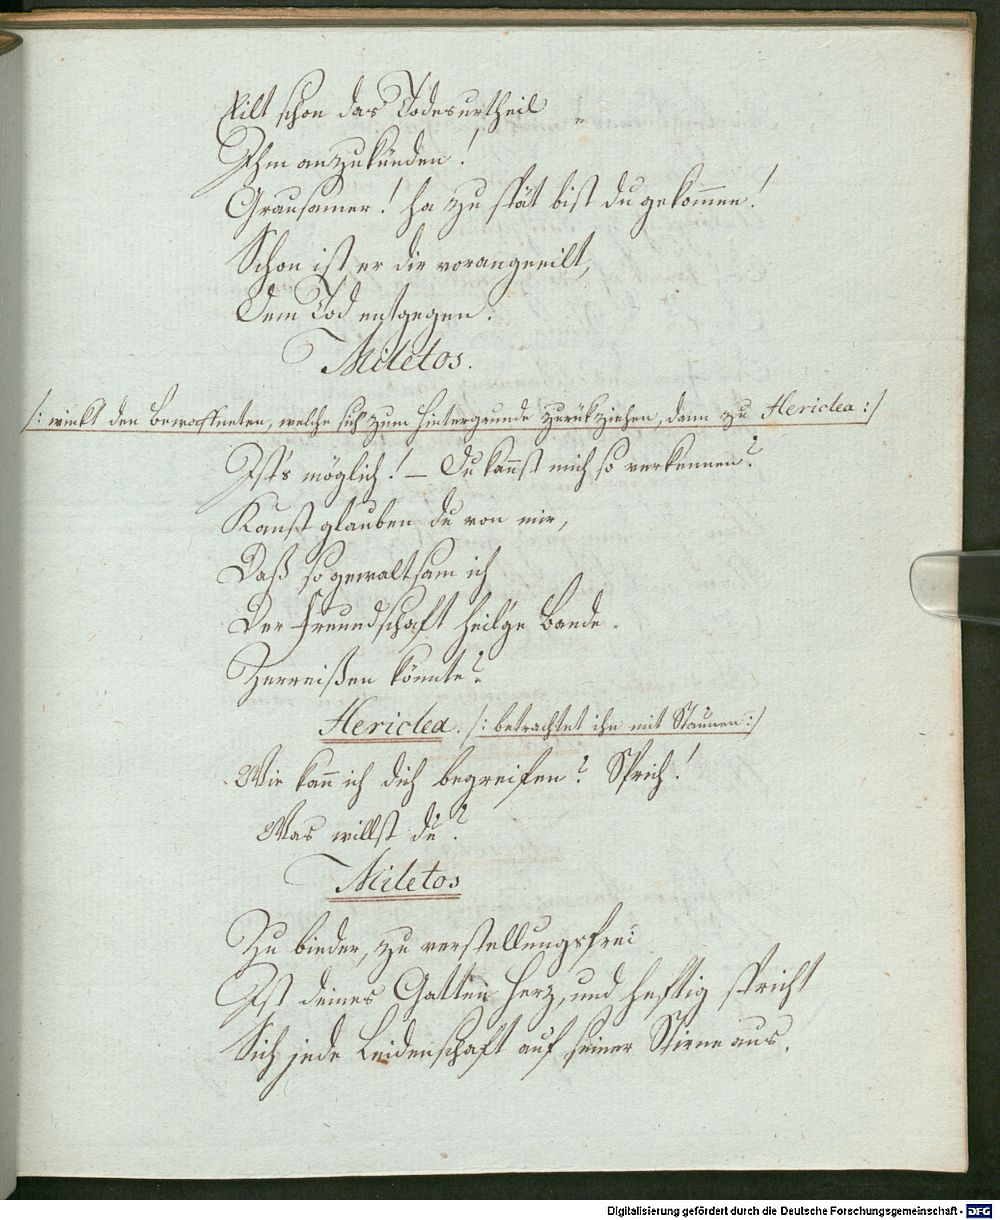 Eilt schon das Todesurtheil
Ihm anzukünden!
Grausamer! ha zu spät bist du gekom̄en!
Schon ist er dir vorangeeilt,
Dem Tod entgegen.
Miletos.
/: winkt den Bewaffneten, welche sich zum Hintergrunde zurükziehen, dann zu Hericlea :/
Ist's möglich! – Du kan̄st mich so verkennen?
Kanst glauben du von mir,
Daß so gewaltsam ich
Der Freundschaft heil'ge Bande
Zerreißen könnte?
Hericlea. /: betrachtet ihn mit Staunen :/
Wie kan̄ ich dich begreifen? Sprich!
Was willst du?
Miletos
Zu bieder, zu verstellungsfrei
Ist deines Gatten Herz, und heftig spricht
Sich jede Leidenschaft auf seiner Stirne aus.
Digitalisierung gefördert durch die Deutsche Forschungsgemeinschaft - DFG